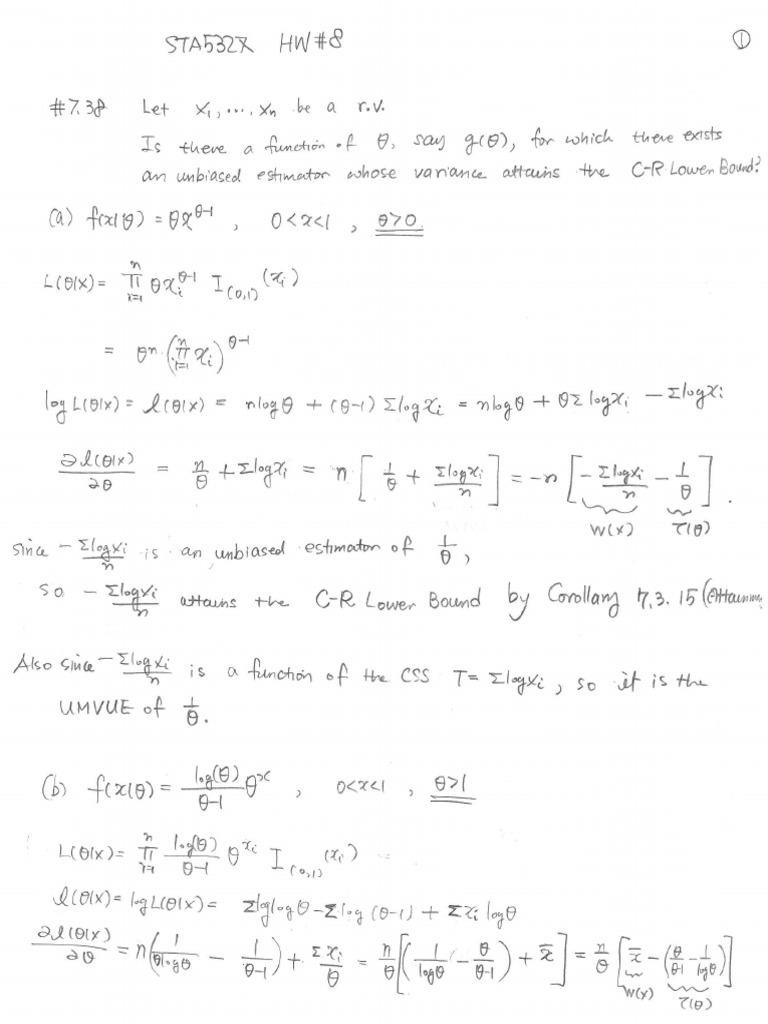 STA532X HW#8 ①
#7.38 Let x₁, ..., xn be a r.v.
Is there a function of θ, say g(θ), for which there exists
an unbiased estimator whose variance attains the C-R Lower Bound?
(a) f(x|θ) = θx^(θ-1) , 0<x<1 , θ>0.
L(θ|x) = ∏_{i=1}^{n} θx_i^(θ-1) I_(0,1)(x_i)
= θ^n (∏_{i=1}^{n} x_i)^(θ-1)
log L(θ|x) = l(θ|x) = n log θ + (θ-1) Σ log x_i = n log θ + θ Σ log x_i - Σ log x_i
∂l(θ|x)/∂θ = n/θ + Σ log x_i = n [ 1/θ + Σ log x_i / n ] = -n [ -Σ log x_i / n - 1/θ ] .
W(x) τ(θ)
since -Σ log x_i / n is an unbiased estimator of 1/θ ,
so -Σ log x_i / n attains the C-R Lower Bound by Corollary 7.3.15 (Attainm
Also since -Σ log x_i / n is a function of the CSS T = Σ log x_i , so it is the
UMVUE of 1/θ .
(b) f(x|θ) = log(θ)/(θ-1) θ^x , 0<x<1 , θ>1
L(θ|x) = ∏_{i=1}^{n} log(θ)/(θ-1) θ^(x_i) I_(0,1)(x_i)
l(θ|x) = log L(θ|x) = Σ log log θ - Σ log (θ-1) + Σ x_i log θ
∂l(θ|x)/∂θ = n ( 1/(θ log θ) - 1/(θ-1) ) + Σ x_i / θ = n/θ [ ( 1/log θ - θ/(θ-1) ) + x̄ ] = n/θ [ x̄ - ( θ/(θ-1) - 1/log θ ) ]
W(x) τ(θ)